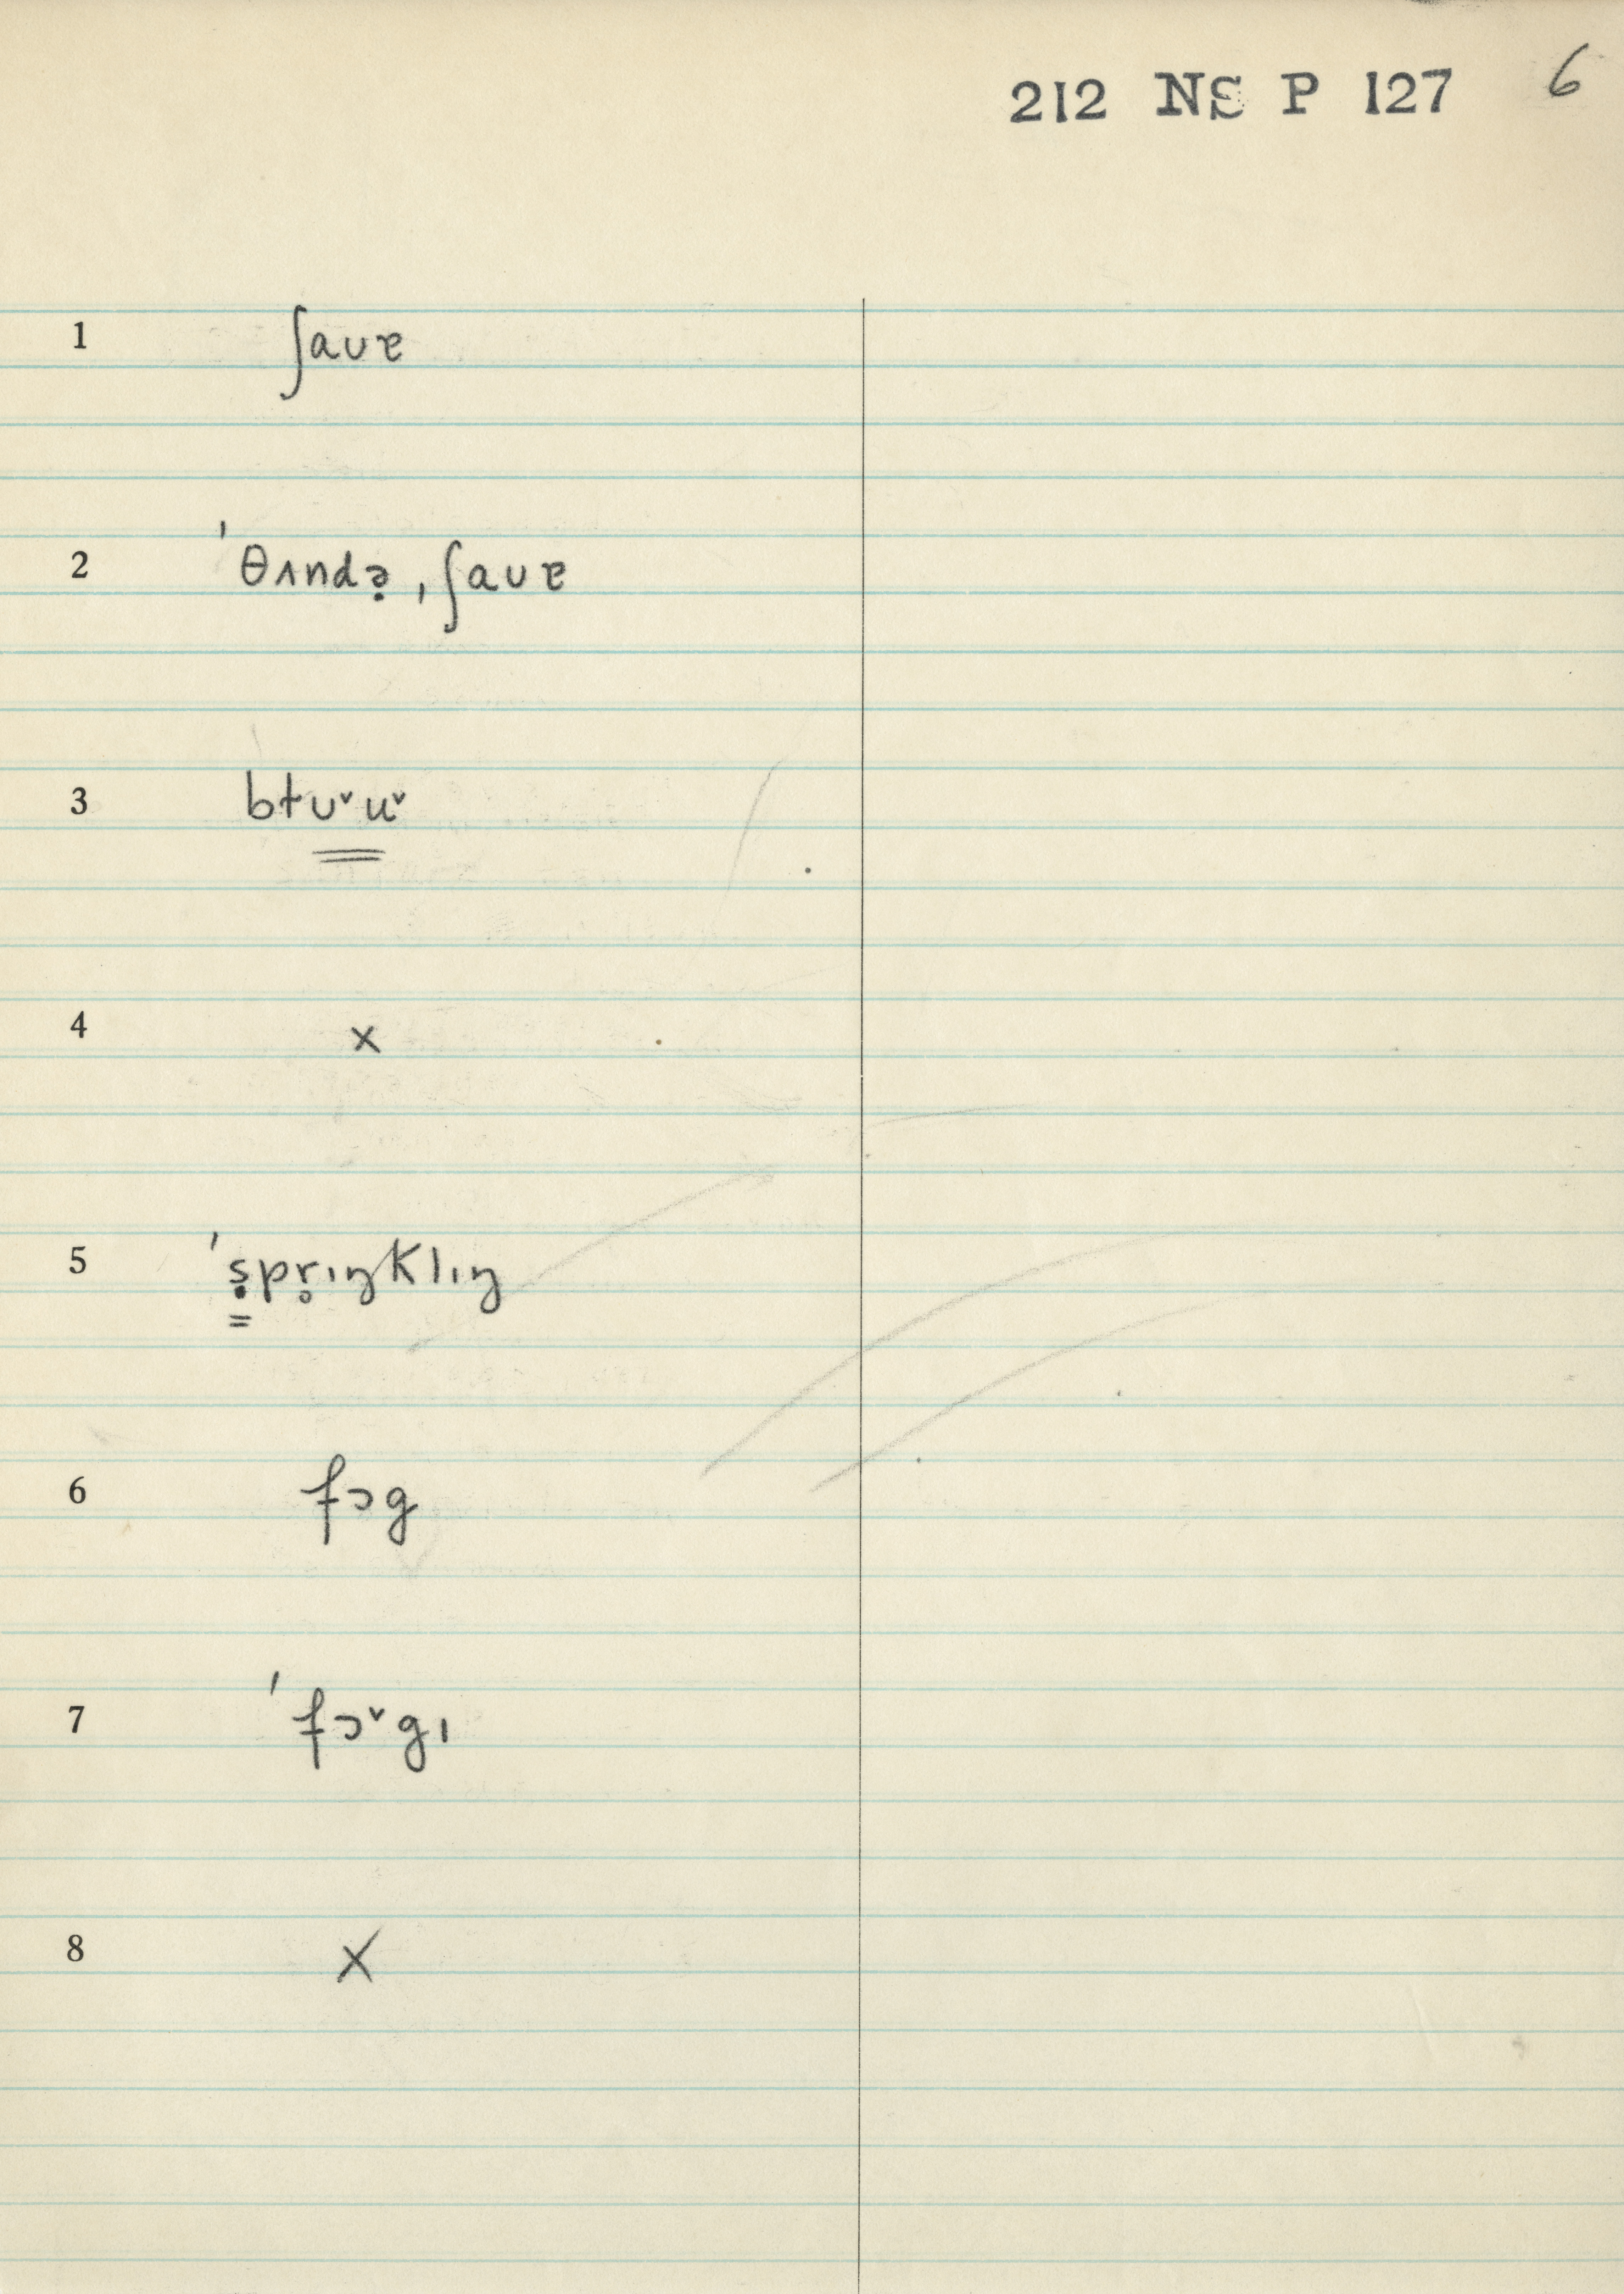 212 NS P 127 6
1 ʃauɐ
2 ˈθʌndə̣ ˌʃauɐ
3 bɫu˅u˅
4 x
5 ˈṣpr̥ıŋklıŋ
6 fɔg
7 ˈfɔ˅gı
8 X